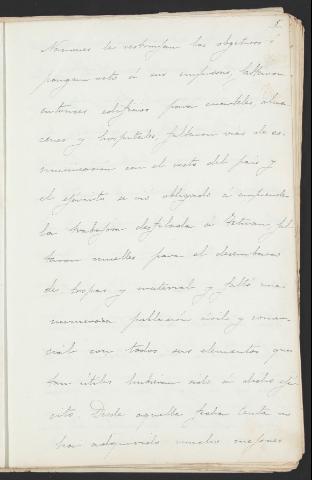 Naciones le restrinjan los objetivos ó
pongan veto á sus empresas, faltaron
entonces edificios para cuarteles, alma
cenes y hospitales, faltaron vias de co-
municacion con el resto del pais y
el ejército se vió obligado á emprender
la trabajosa desfilada á Tetuan, fal
taron muelles para el desembarco
de tropas y material y faltó una
numerosa poblacion civil y comer
cial con todos sus elementos que
tan útiles hubieran sido á dicho ejér
cito. Desde aquella fecha Ceuta no
ha adquirido muchas mejoras